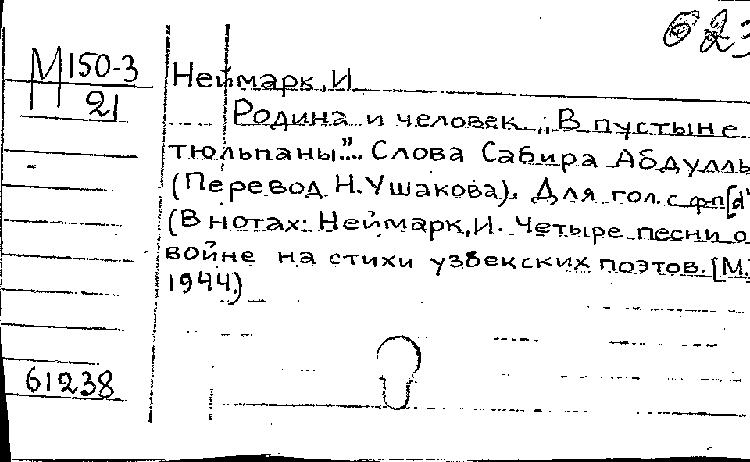 623
М150-3
21
Неймарк, И.
Родина и человек „В пустыне
тюльпаны"... Слова Сабира Абдулль
(Перевод Н. Ушакова). Для гол. с ф-п [d'
(В нотах: Неймарк, И. Четыре песни о
войне на стихи узбекских поэтов. [М.
1944.)
61238